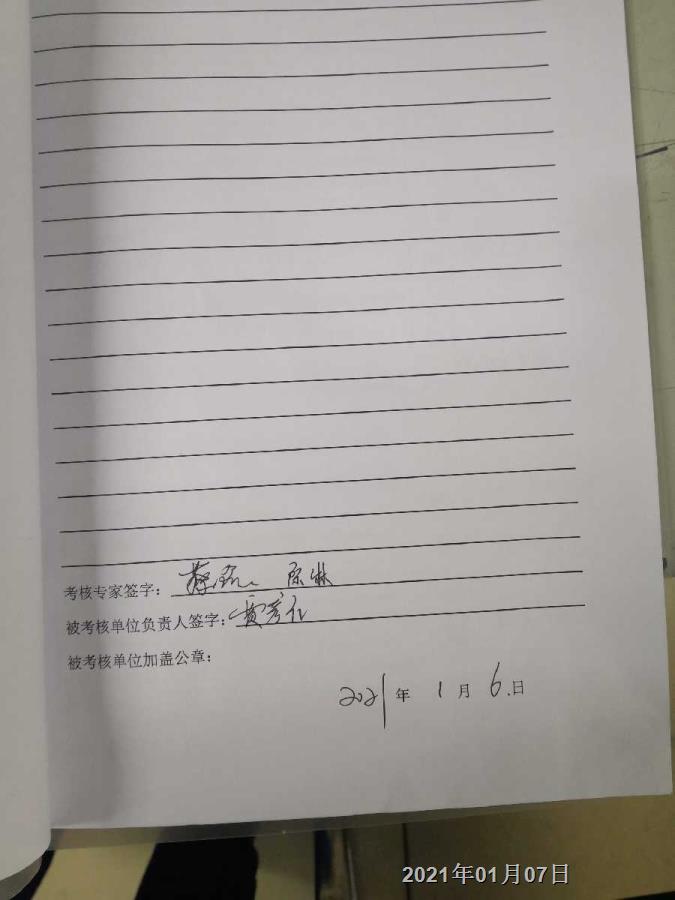 考核专家签字：
被考核单位负责人签字：
被考核单位加盖公章：
2021年 1月 6.日
2021年01月07日